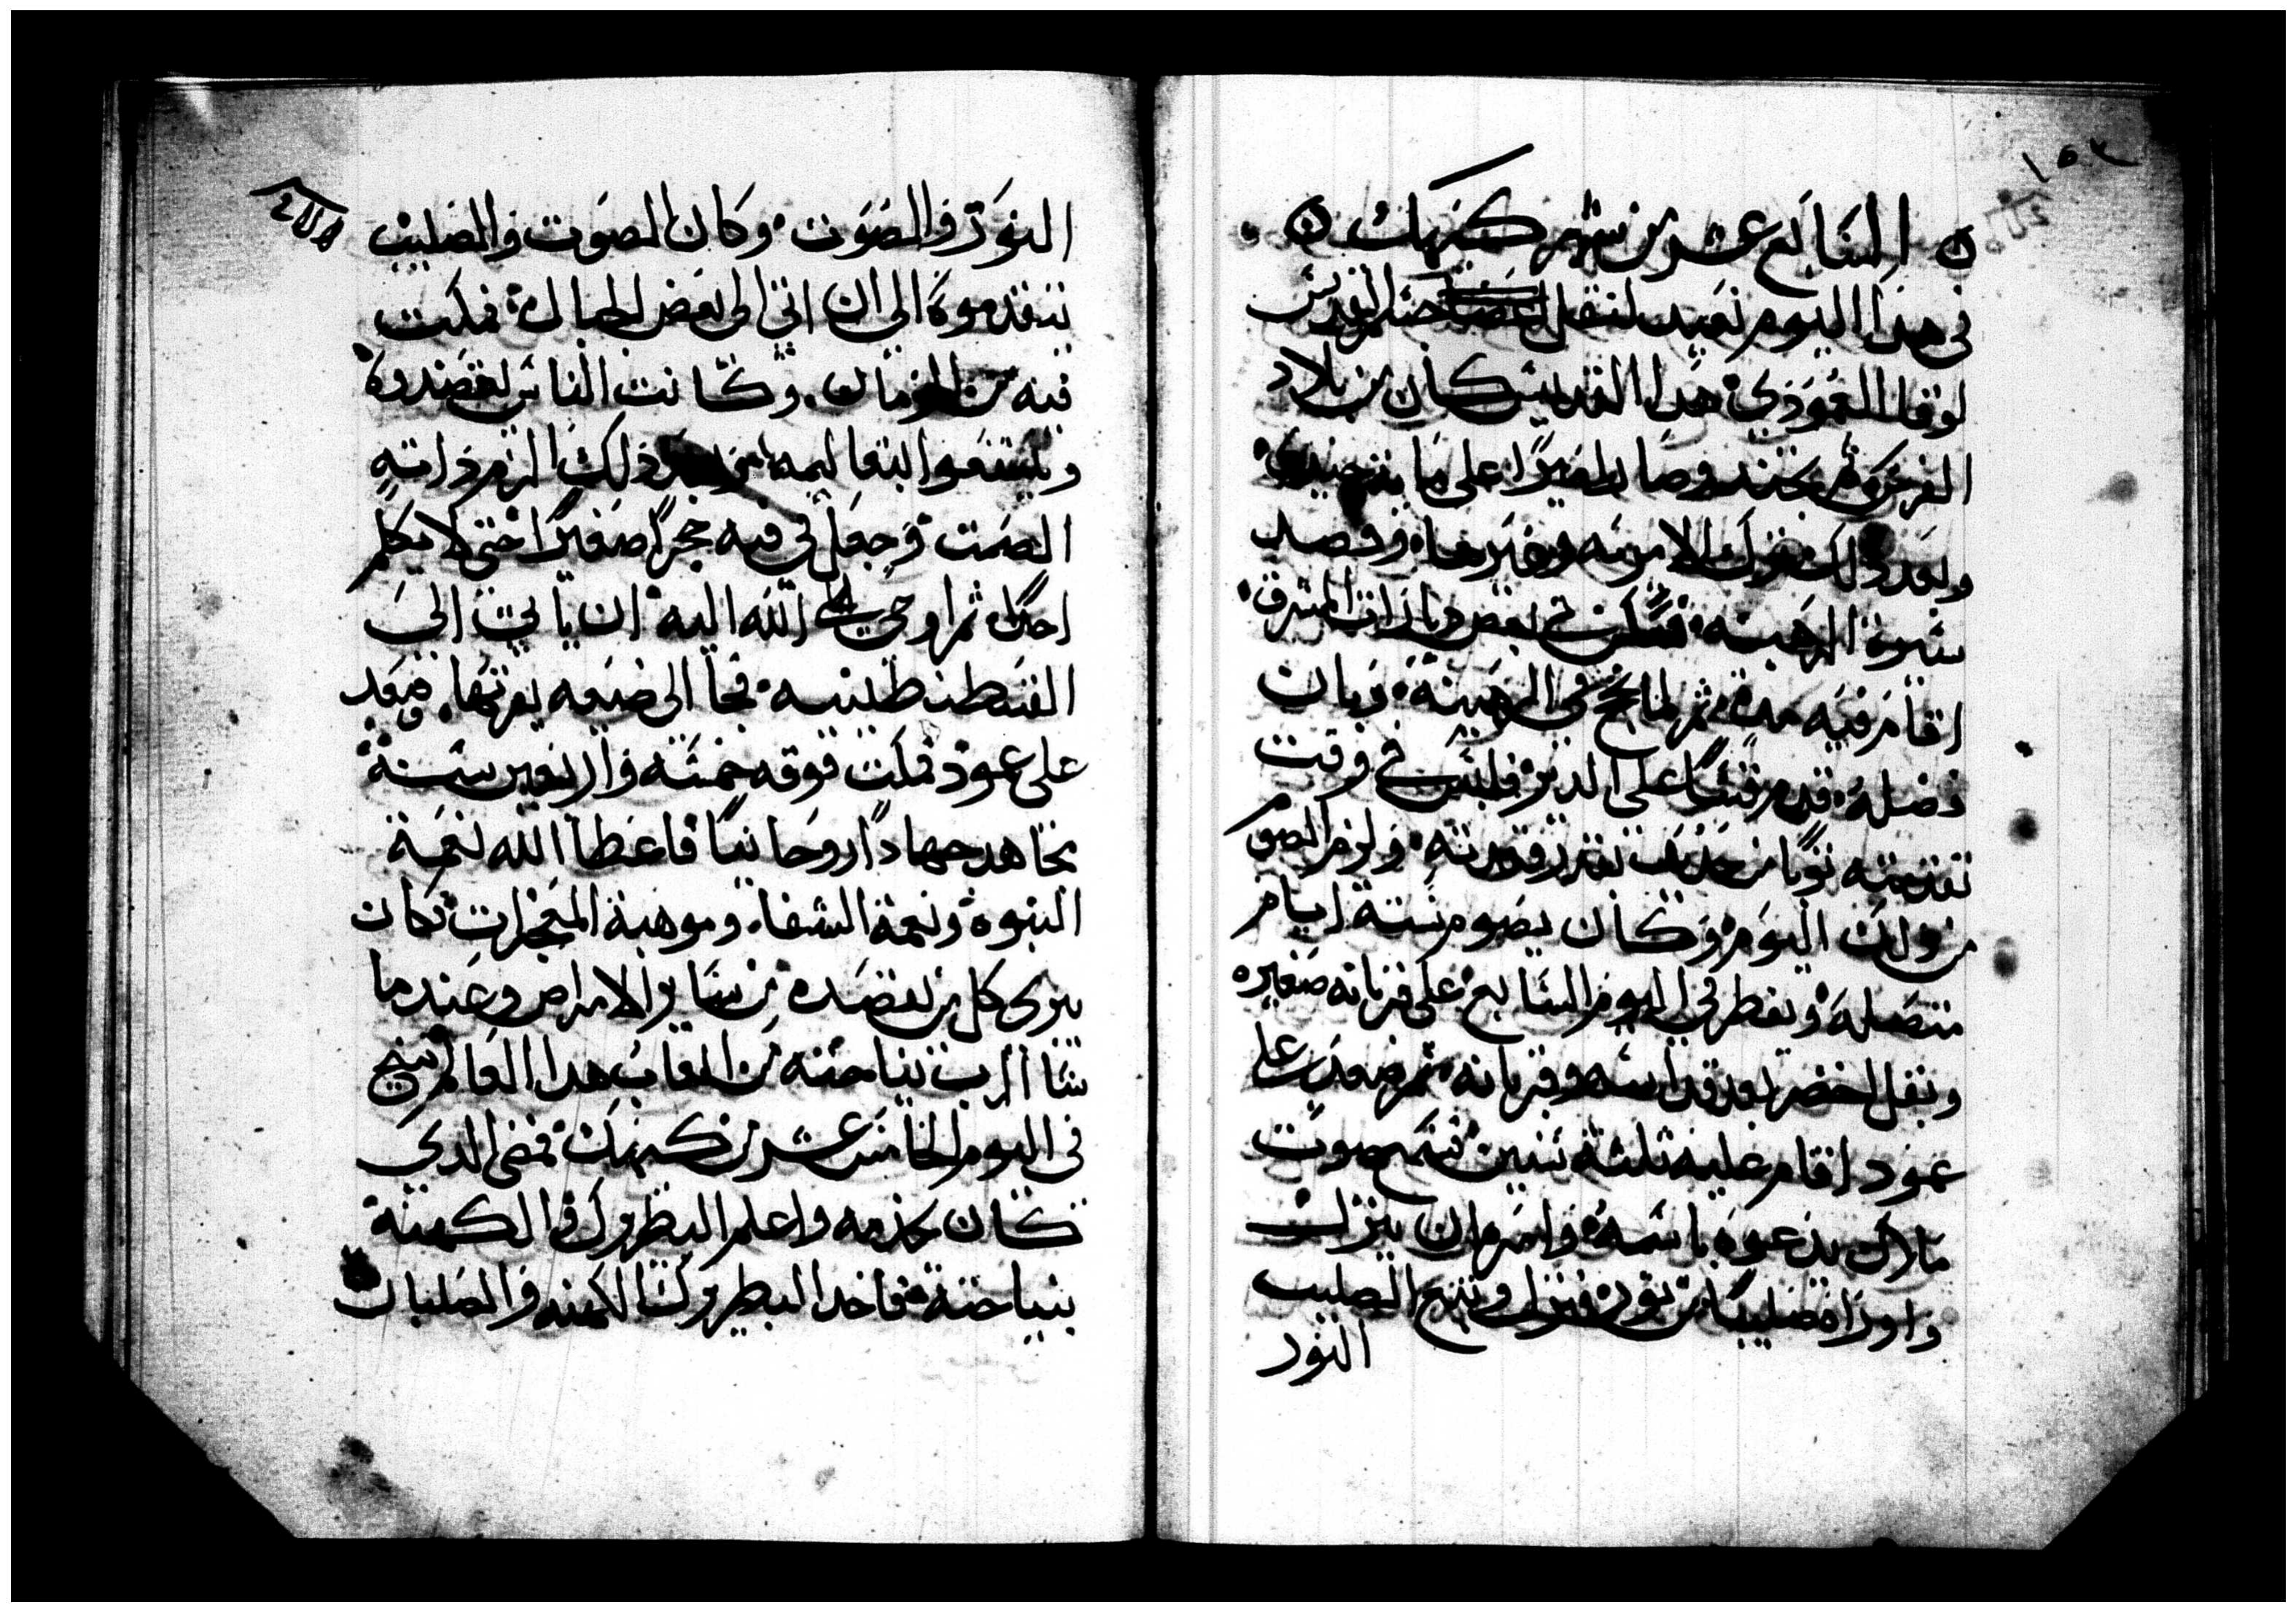 ١٥٣
السابع عشر من شهر كيهك
في هدا اليوم نعيد لنقل جسد القديس
لوقا العمودي هدا القديس كان من بلاد
الفرس وصار اميرا على ما ية جندي
وبعد دلك ترك الامريه وغيرها وقصد
سيرة الرهبنه فسكن في بعض ديارات المشرق
اقام فيه مدة ثم لما نجح في الرهبنة وبان
فضله قدم قسا على الدير فلبس في وقت
تقدمته توبا من حديد ولزم الصوم
من دلك اليوم وكان يصوم ستة ايام
متصلة ويفطر في اليوم السابع على قربانه صغيره
وبقل اخضر بعد قداسه وقربانه ثم صعد على
عمود اقام عليه ثلثة سنين فسمع صوت
ملاك يدعوه باسمه وامره ان ينزل
واوراه صليبا من نور فنزل وتبع الصليب
النور
النور والصوت وكان الصوت والصليب
يتقدموه الى ان اتي الى بعض الجبال فمكت
فيه من الزمان وكانت الناس تقصدوه
وينتفعوا بتعاليمه بعد ذلك الزم ذاته
الصمت وجعل في فيه حجرا صغيرا حتى لا يكلم
احدا ثم اوحى الله اليه ان ياتي الى
القسطنطينيه فجا الى ضيعه بقربها فصعد
على عمود فمكت فوقه خمسه واربعين سنة
يجاهد جهادا روحانيا فاعطا الله نعمة
النبوه ونعمة الشفا وموهبة المعجزات فكان
يبرى كل من يقصده من ساير الامراض وعندما
شا الرب بنياحته من اتعاب هدا العالم تنيح
في اليوم الخامس عشر من كيهك فمضى الدي
كان يخدمه واعلم البطروك والكهنة
بنياحته فاخد البطريرك الكهنه والصلبان